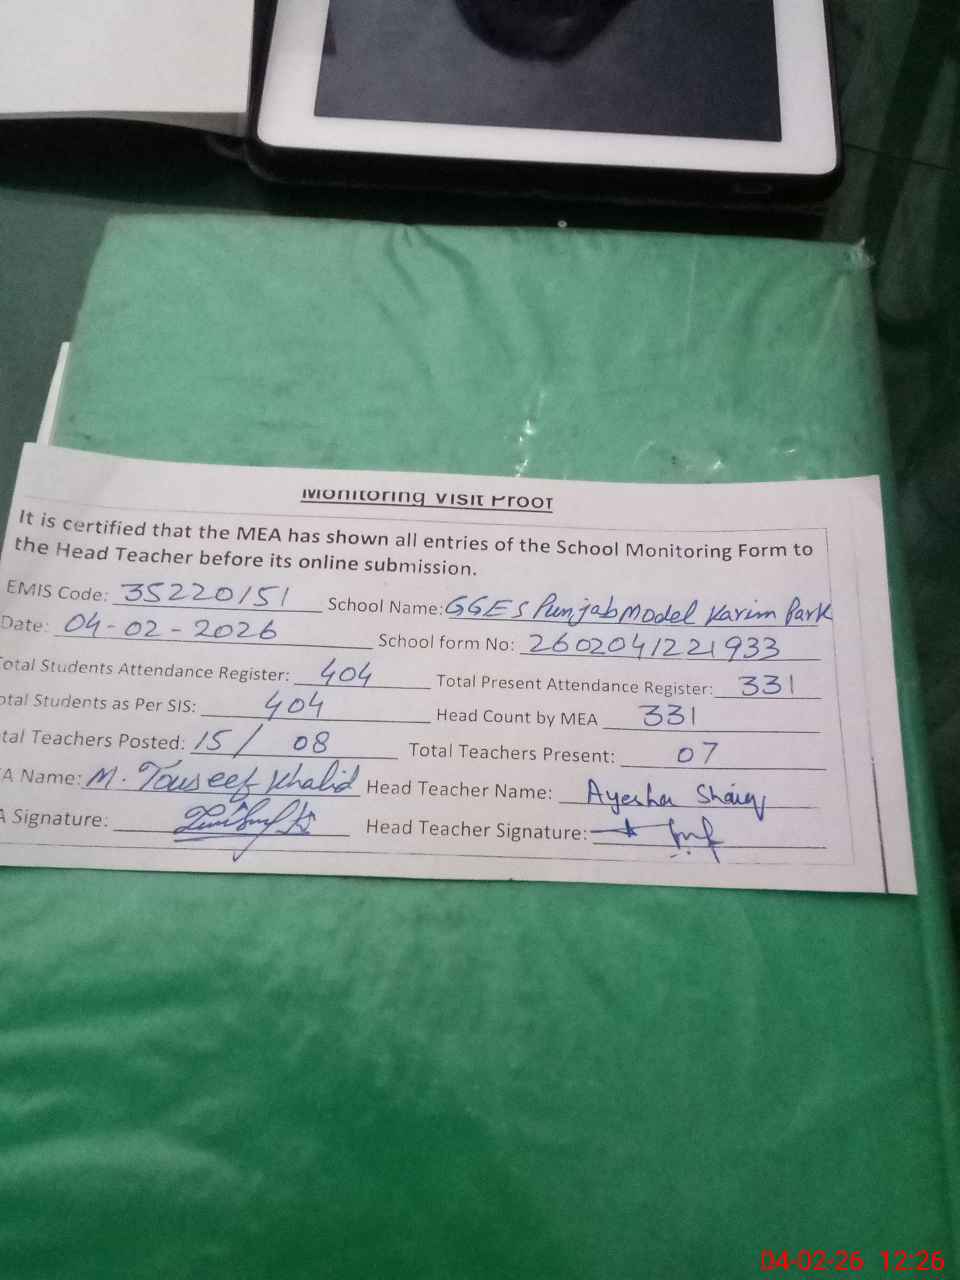 Monitoring Visit Proof
It is certified that the MEA has shown all entries of the School Monitoring Form to
the Head Teacher before its online submission.
EMIS Code: 35220151 School Name: GGES Punjab Model Karim Park
Date: 04-02-2026 School form No: 2602041221933
otal Students Attendance Register: 404 Total Present Attendance Register: 331
otal Students as Per SIS: 404 Head Count by MEA 331
tal Teachers Posted: 15/ 08 Total Teachers Present: 07
A Name: M. Touseef Khalid Head Teacher Name: Ayesha
A Signature: Head Teacher Signature:
04-02-26 12:26